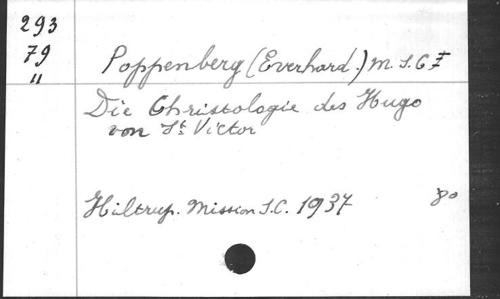 293
79
11
Poppenberg (Everhard.) M. S. C
Die Christologie des Hugo
von St Victor
Hiltrup. Mission S.C. 1937 80